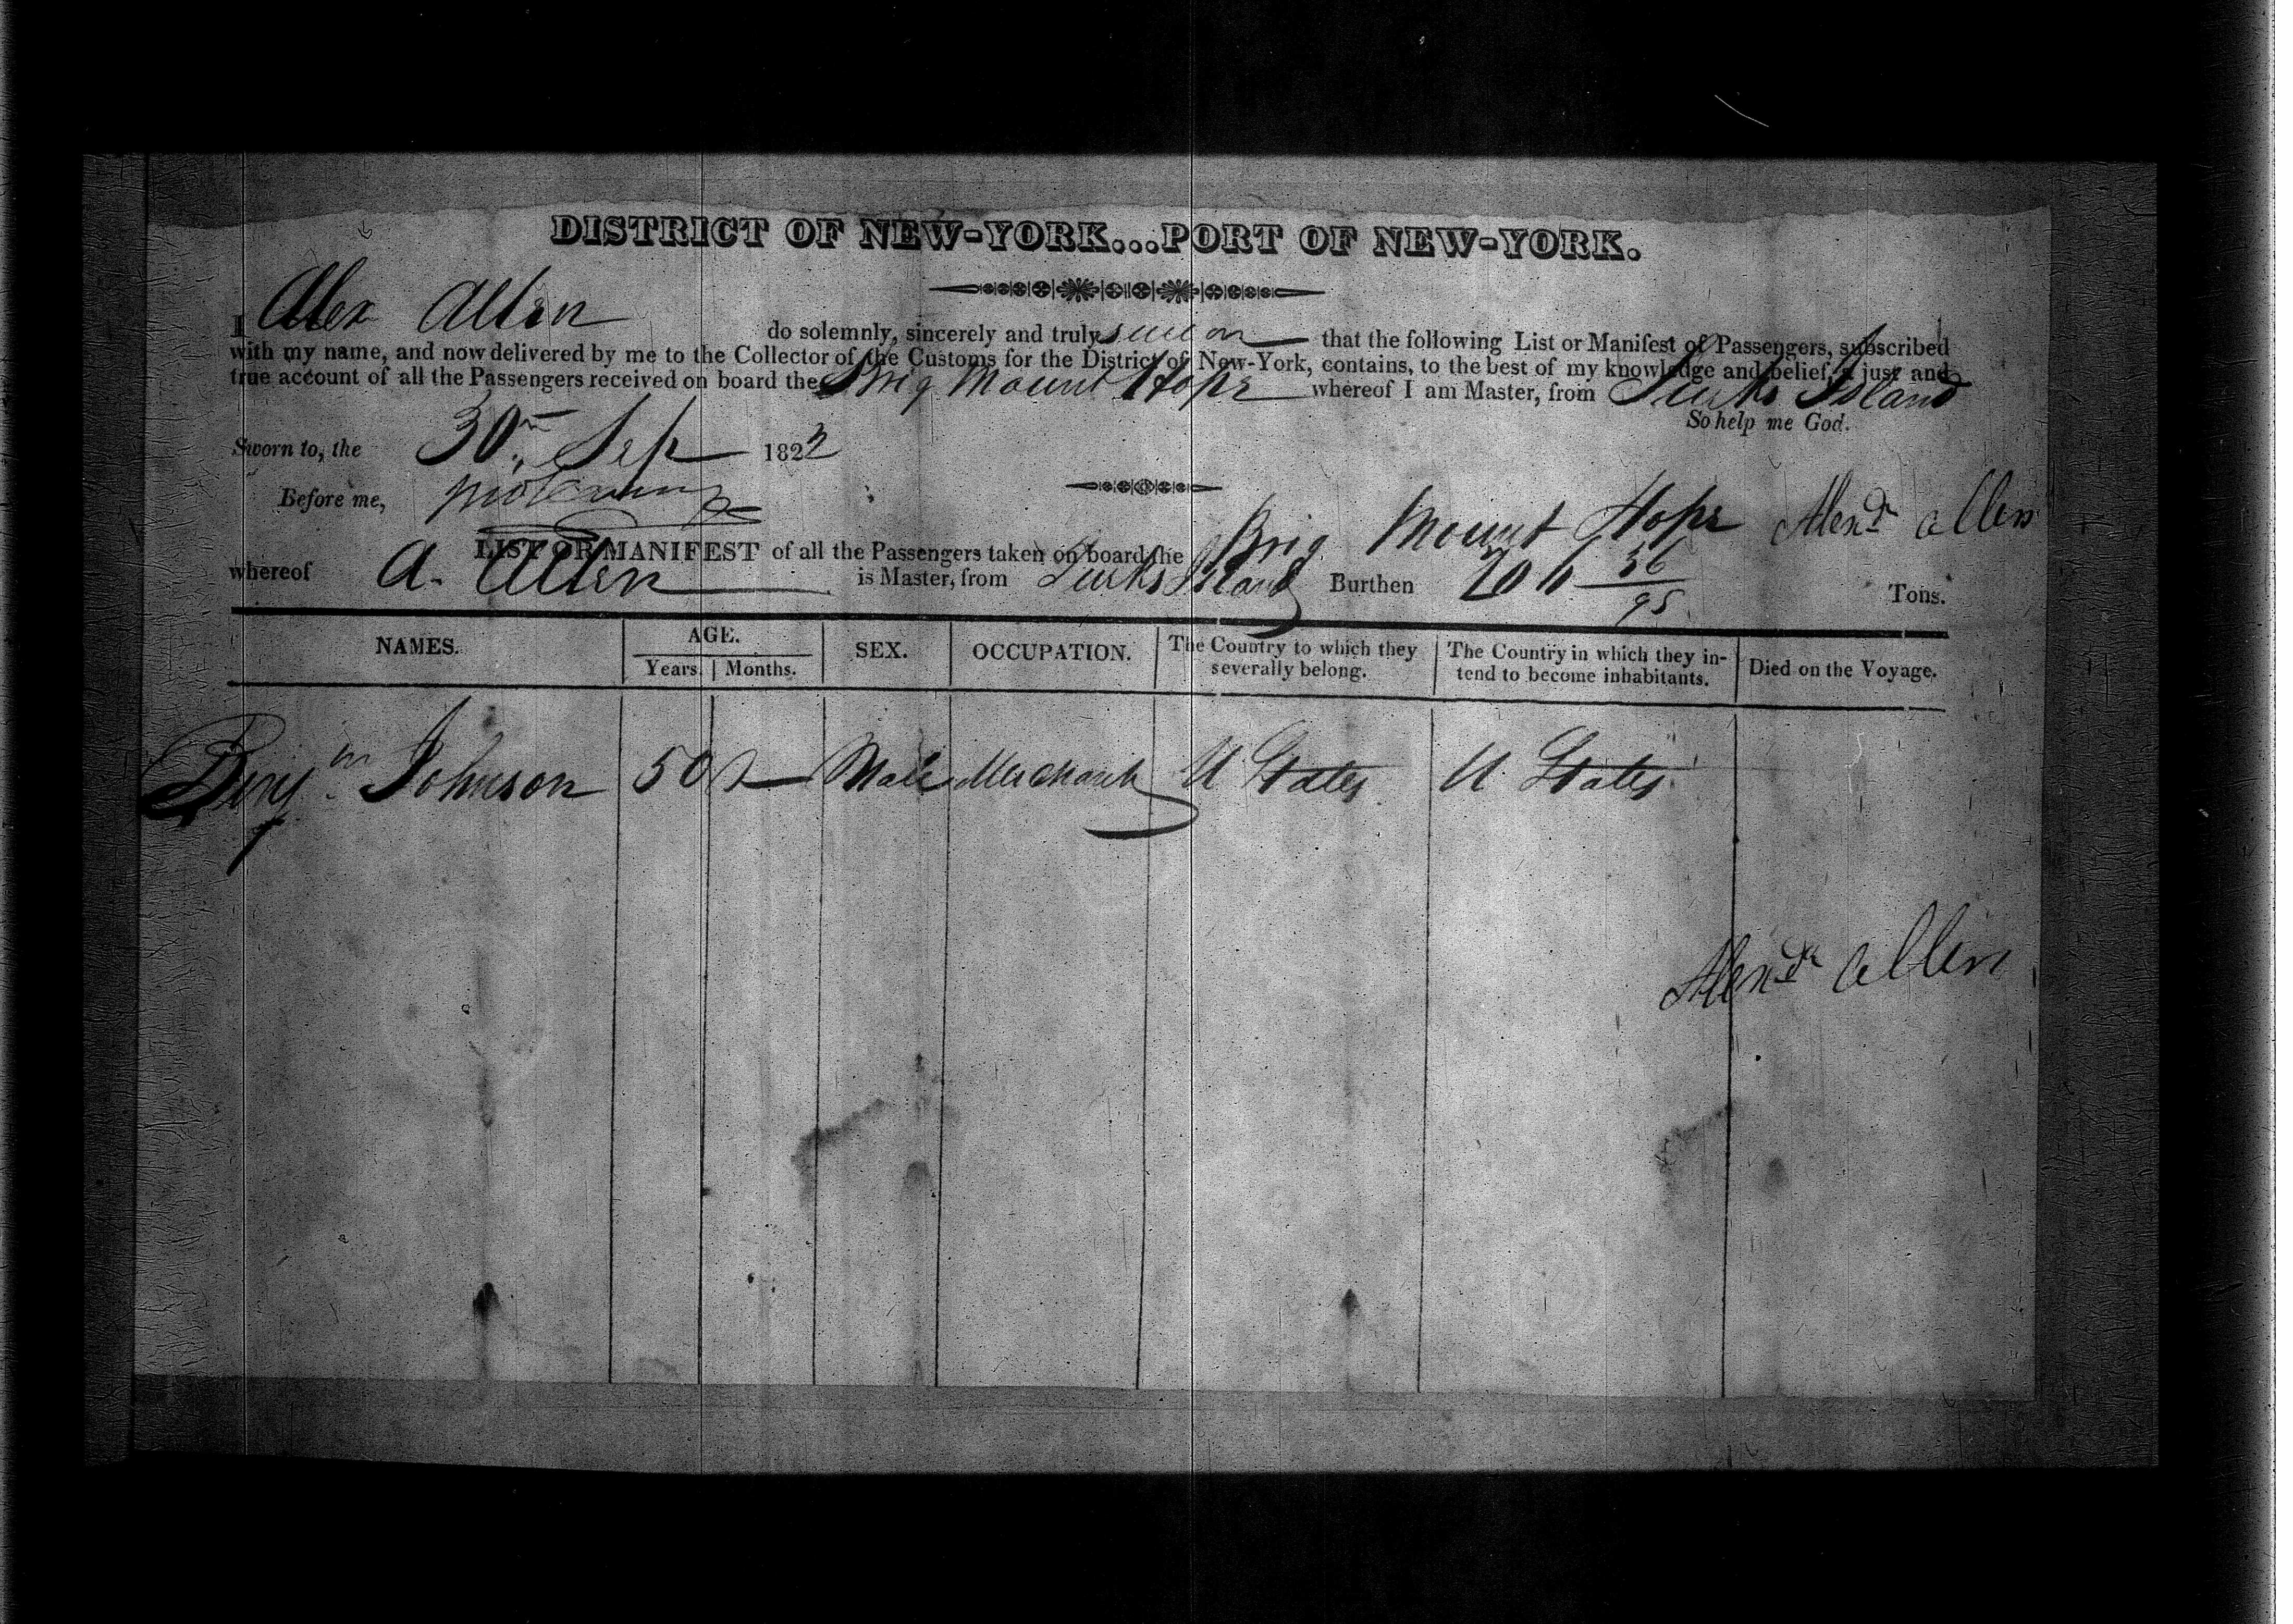 DISTRICT OF NEW-YORK...PORT OF NEW-YORK.
I Alex Allen do solemnly, sincerely and truly swear that the following List or Manifest of Passengers, subscribed
with my name, and now delivered by me to the Collector of the Customs for the District of New-York, contains, to the best of my knowledge and belief, a just and
true account of all the Passengers received on board the Brig Mount Hope whereof I am Master, from Turks Island
So help me God.
Sworn to, the 30th Sep 1822
Before me,
Alexdr Allen
LIST OR MANIFEST of all the Passengers taken on board the Brig Mount Hope
whereof A. Allen is Master, from Turks Island Burthen 206 36/95 Tons.
NAMES. AGE. SEX. OCCUPATION. The Country to which they severally belong. The Country in which they intend to become inhabitants. Died on the Voyage.
Years. Months.
Benjm Johnson 50 Male Merchant U States U. States
Alexdr Allen